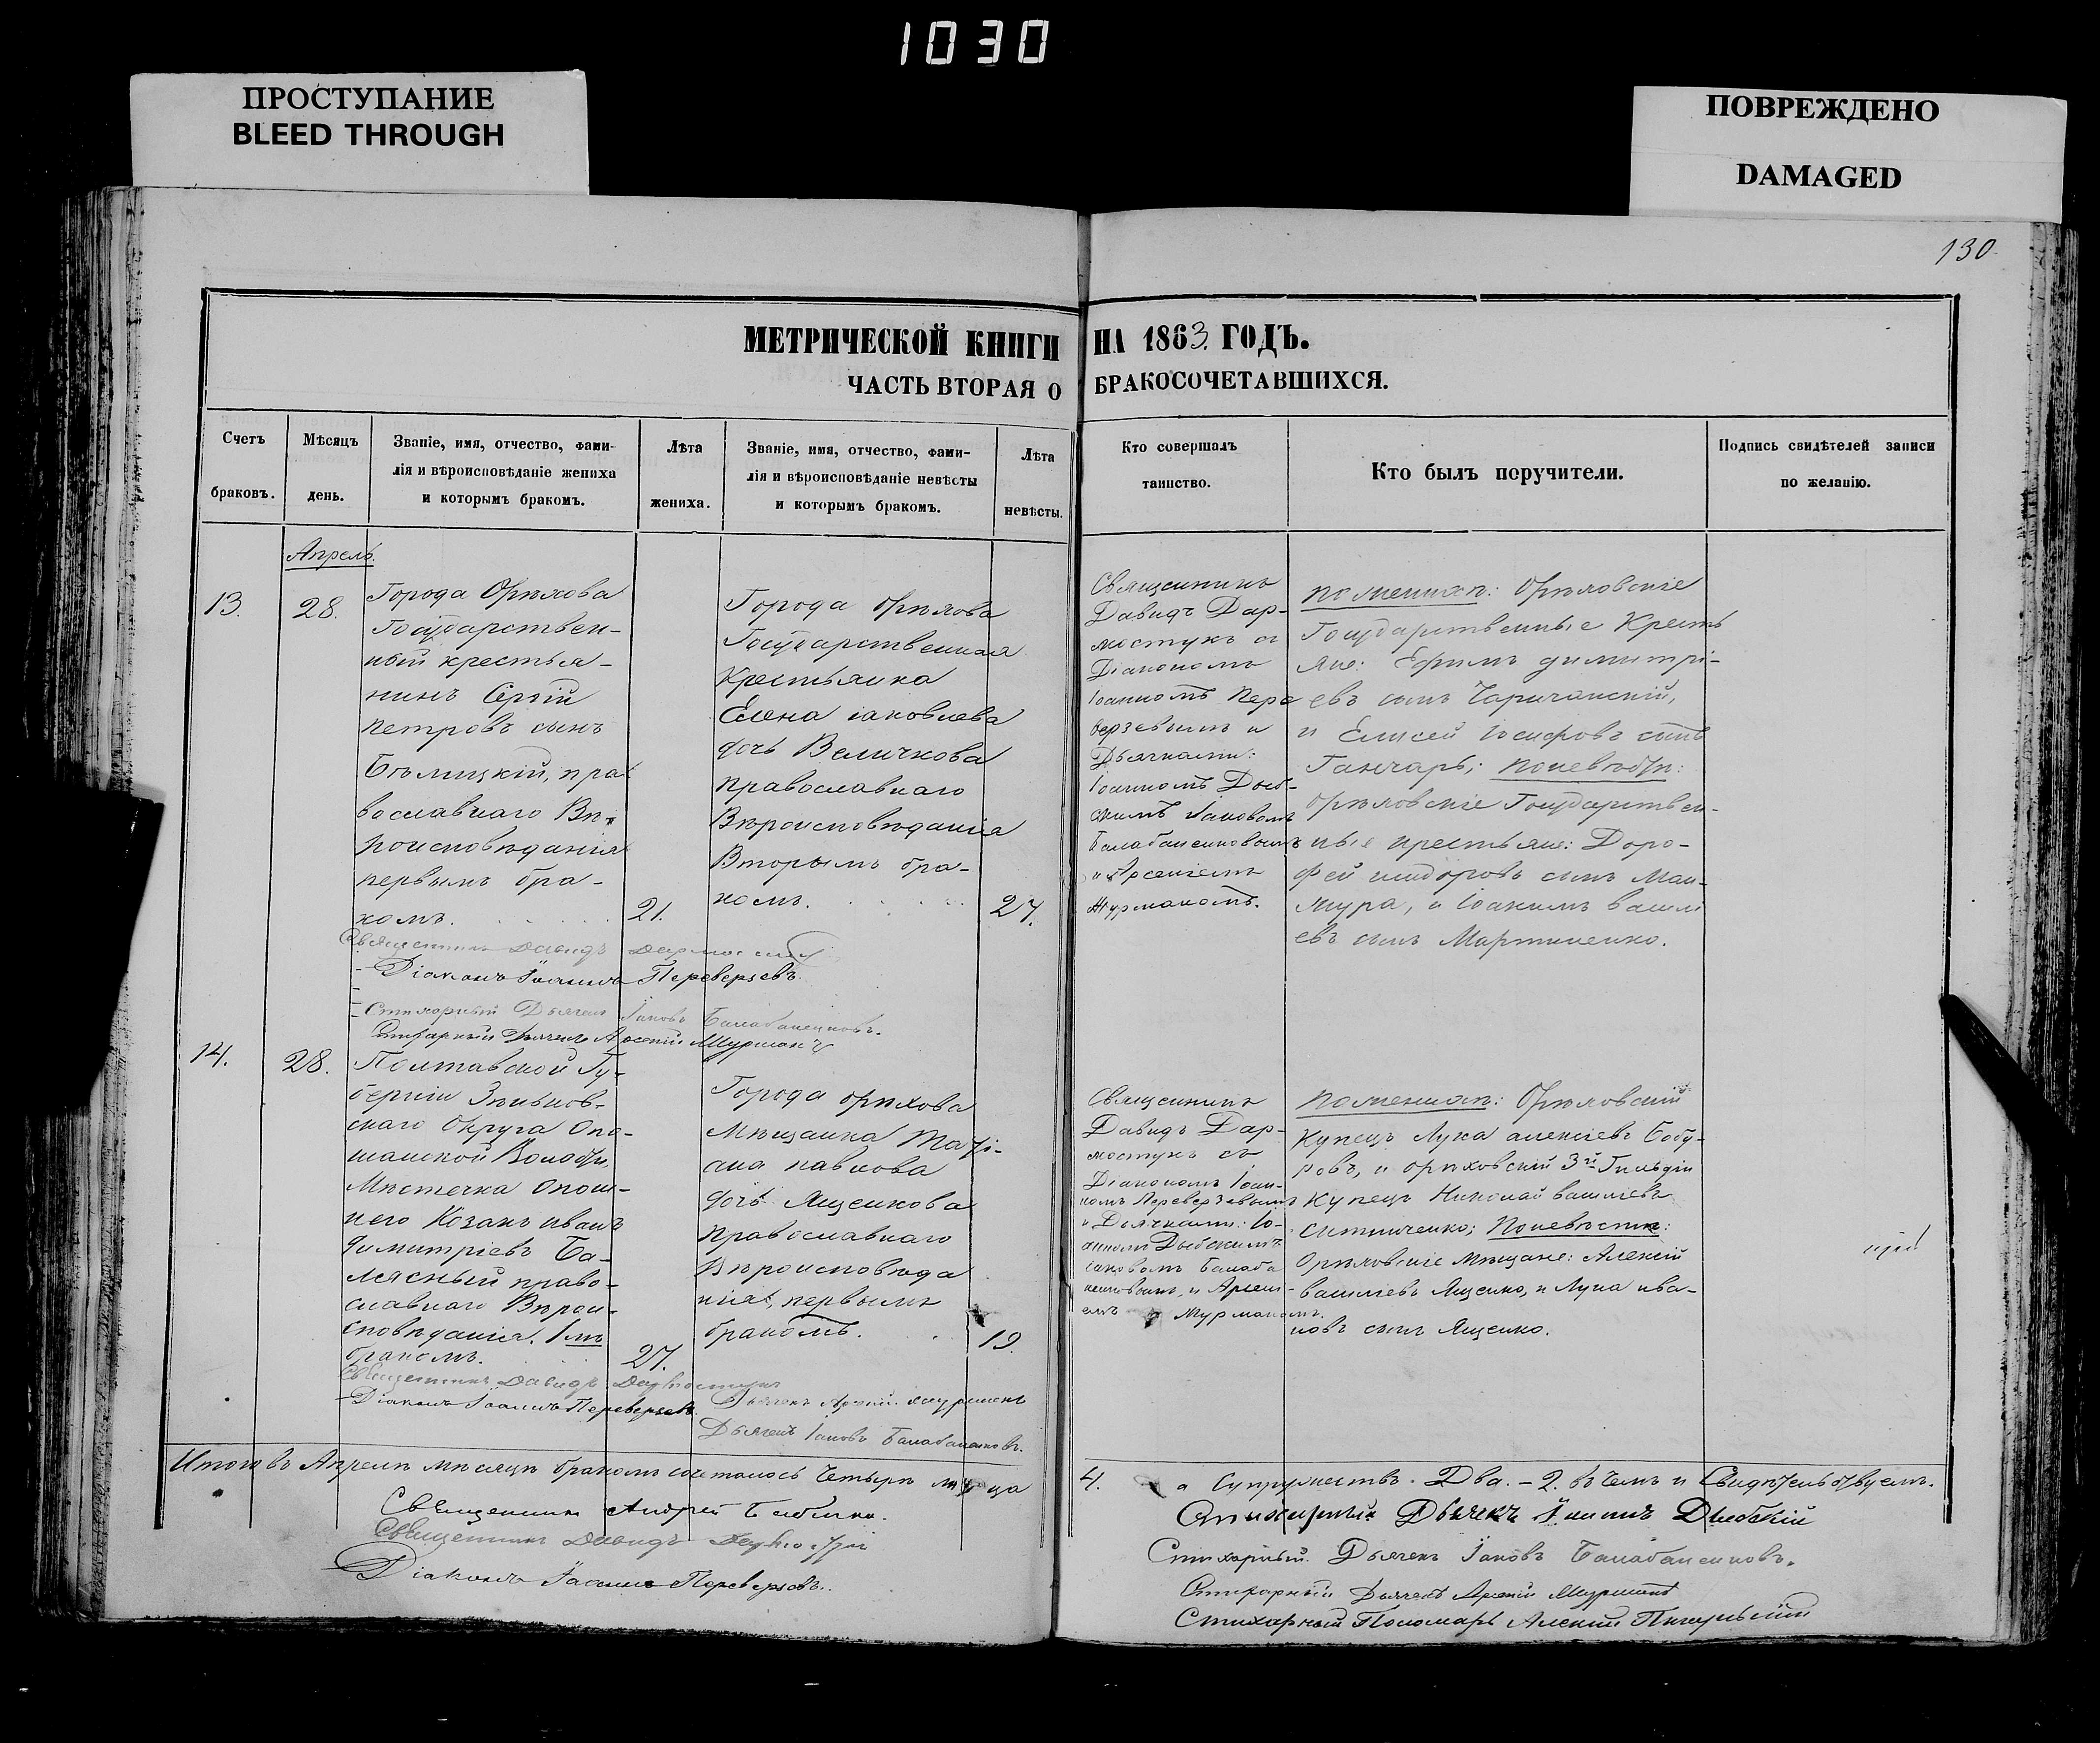 1030
ПРОСТУПАНИЕ
BLEED THROUGH
ПОВРЕЖДЕНО
DAMAGED
130
МЕТРИЧЕСКОЙ КНИГИ НА 1863. ГОДЪ.
ЧАСТЬ ВТОРАЯ О БРАКОСОЧЕТАВШИХСЯ.
Счетъ
браковъ.
Мѣсяцъ
день.
Званіе, имя, отчество, фами-
лія и вѣроисповѣданіе жениха
и которымъ бракомъ.
Лѣта
жениха.
Званіе, имя, отчество, фами-
лія и вѣроисповѣданіе невѣсты
и которымъ бракомъ.
Лѣта
невѣсты.
Кто совершалъ
таинство.
Кто былъ поручители.
Подпись свидѣтелей записи
по желанію.
Апрель
13.
28.
Города Орѣхова
Государствен-
ный крестья-
нинъ Сергій
Петровъ сынъ
Бѣлицкій, пра
вославнаго Вѣ-
роисповѣданія
первымъ бра-
комъ.
21.
Города Орѣхова
Государственная
Крестьянка
Елена іаковлева
дочь Величкова
православнаго
Вѣроисповѣданія
Вторымъ бра-
комъ.
27.
Священникъ
Давидъ Дар-
мостукъ съ
Діакономъ
Іоанномъ Пере
верзевымъ и
Дьячками:
Іоанномъ Дыб-
скимъ Іаковомъ
Балабаненковымъ
и Арсеніемъ
Мурманомъ.
По женихѣ: Орѣховскіе
Государственные Кресть
яне: Ефимъ димитрі-
евъ сынъ Чаричанскій,
и Елисей Іосифовъ сынъ
Ганчарь; по невѣстѣ:
Орѣховскіе Государствен-
ные крестьяне: Доро-
фей сидоровъ сынъ Ман-
жура, и Іоакимъ васил
евъ сынъ Мартиненко.
Священникъ Давидъ
Діаконъ Іоаннъ Переверзевъ.
Стихарный Дьячекъ Іаковъ Балабаненковъ.
Стихарный Дьячекъ Арсеній Мурманъ
14.
28.
Полтавской Гу-
берніи Зѣньков-
скаго Округа Опо-
шанской Волости,
Мѣстечка Опош-
него Козакъ иванъ
димитріевъ Ба-
лясный право-
славнаго Вѣрои-
сповѣданія. 1мъ
бракомъ.
27.
Города Орѣхова
Мѣщанка Маті-
ана павлова
дочь Ященкова
православнаго
Вѣроисповѣда
нія, первымъ
бракомъ.
19.
Священникъ
Давидъ Дар-
мостукъ со
Діакономъ Іоан-
номъ Переверзевымъ
и Дьячками: Іо-
анномъ Дыбскимъ
іаковомъ Балаба
ненковымъ, и Арсені-
емъ Мурманомъ.
По женихѣ: Орѣховскій
Купецъ Лука алексіевъ Бобу-
ровъ, и орѣховскій 3й Гильдіи
Купецъ Николай васильевъ
Ситниченко; По невѣстѣ:
Орѣховскіе мѣщане: Алексій
васильевъ Ященко, и Лука ива-
новъ сынъ Ященко.
Священникъ Давидъ Дармостукъ
Діаконъ Іоаннъ Переверзевъ
Дьячекъ Арсеній Мурманъ
Дьячекъ Іаковъ Балабаненковъ.
Итого въ Апрелѣ мѣсяцѣ бракомъ сочеталось Четыре лица 4. а Супружествъ. Два. – 2. въ чемъ и Свидѣтельствуемъ.
Священникъ Андрей
Священникъ Давидъ
Діаконъ Іоаннъ Переверзевъ.
Стихарный Дьячекъ Іоаннъ Дыбскій
Стихарный Дьячекъ Іаковъ Балабаненковъ.
Стихарный Дьячекъ Арсеній Мурманъ
Стихарный Пономарь Алексій